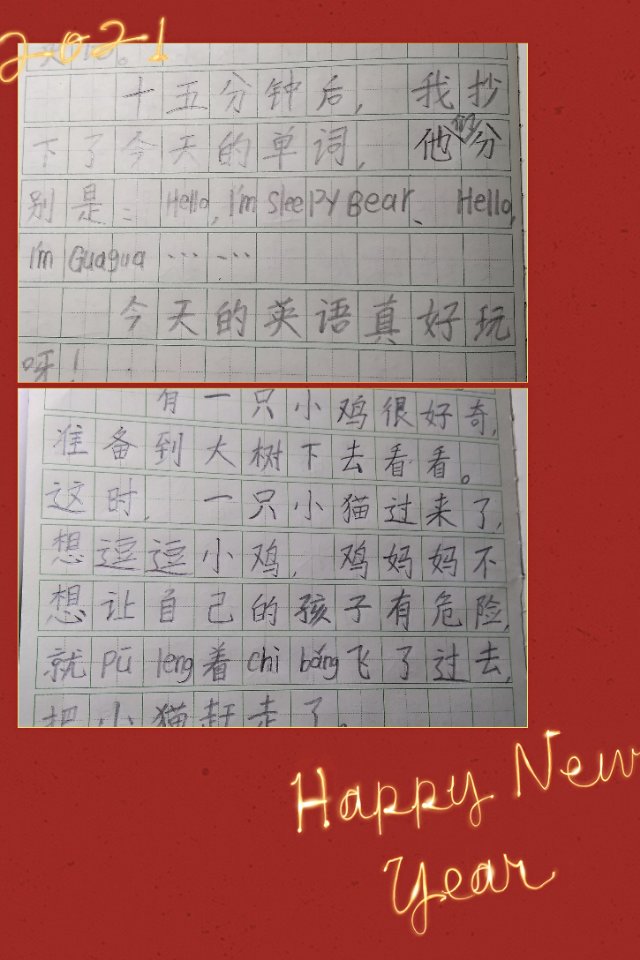 2021
十五分钟后，我抄
下了今天的单词，他们分
别是：Hello, I'm SleePy Bear、Hello,
I'm Guagua ……
今天的英语真好玩
呀！
有一只小鸡很好奇，
准备到大树下去看看。
这时，一只小猫过来了，
想逗逗小鸡，鸡妈妈不
想让自己的孩子有危险，
就pū leng着chì bǎng飞了过去，
把小猫赶走了。
Happy New
Year